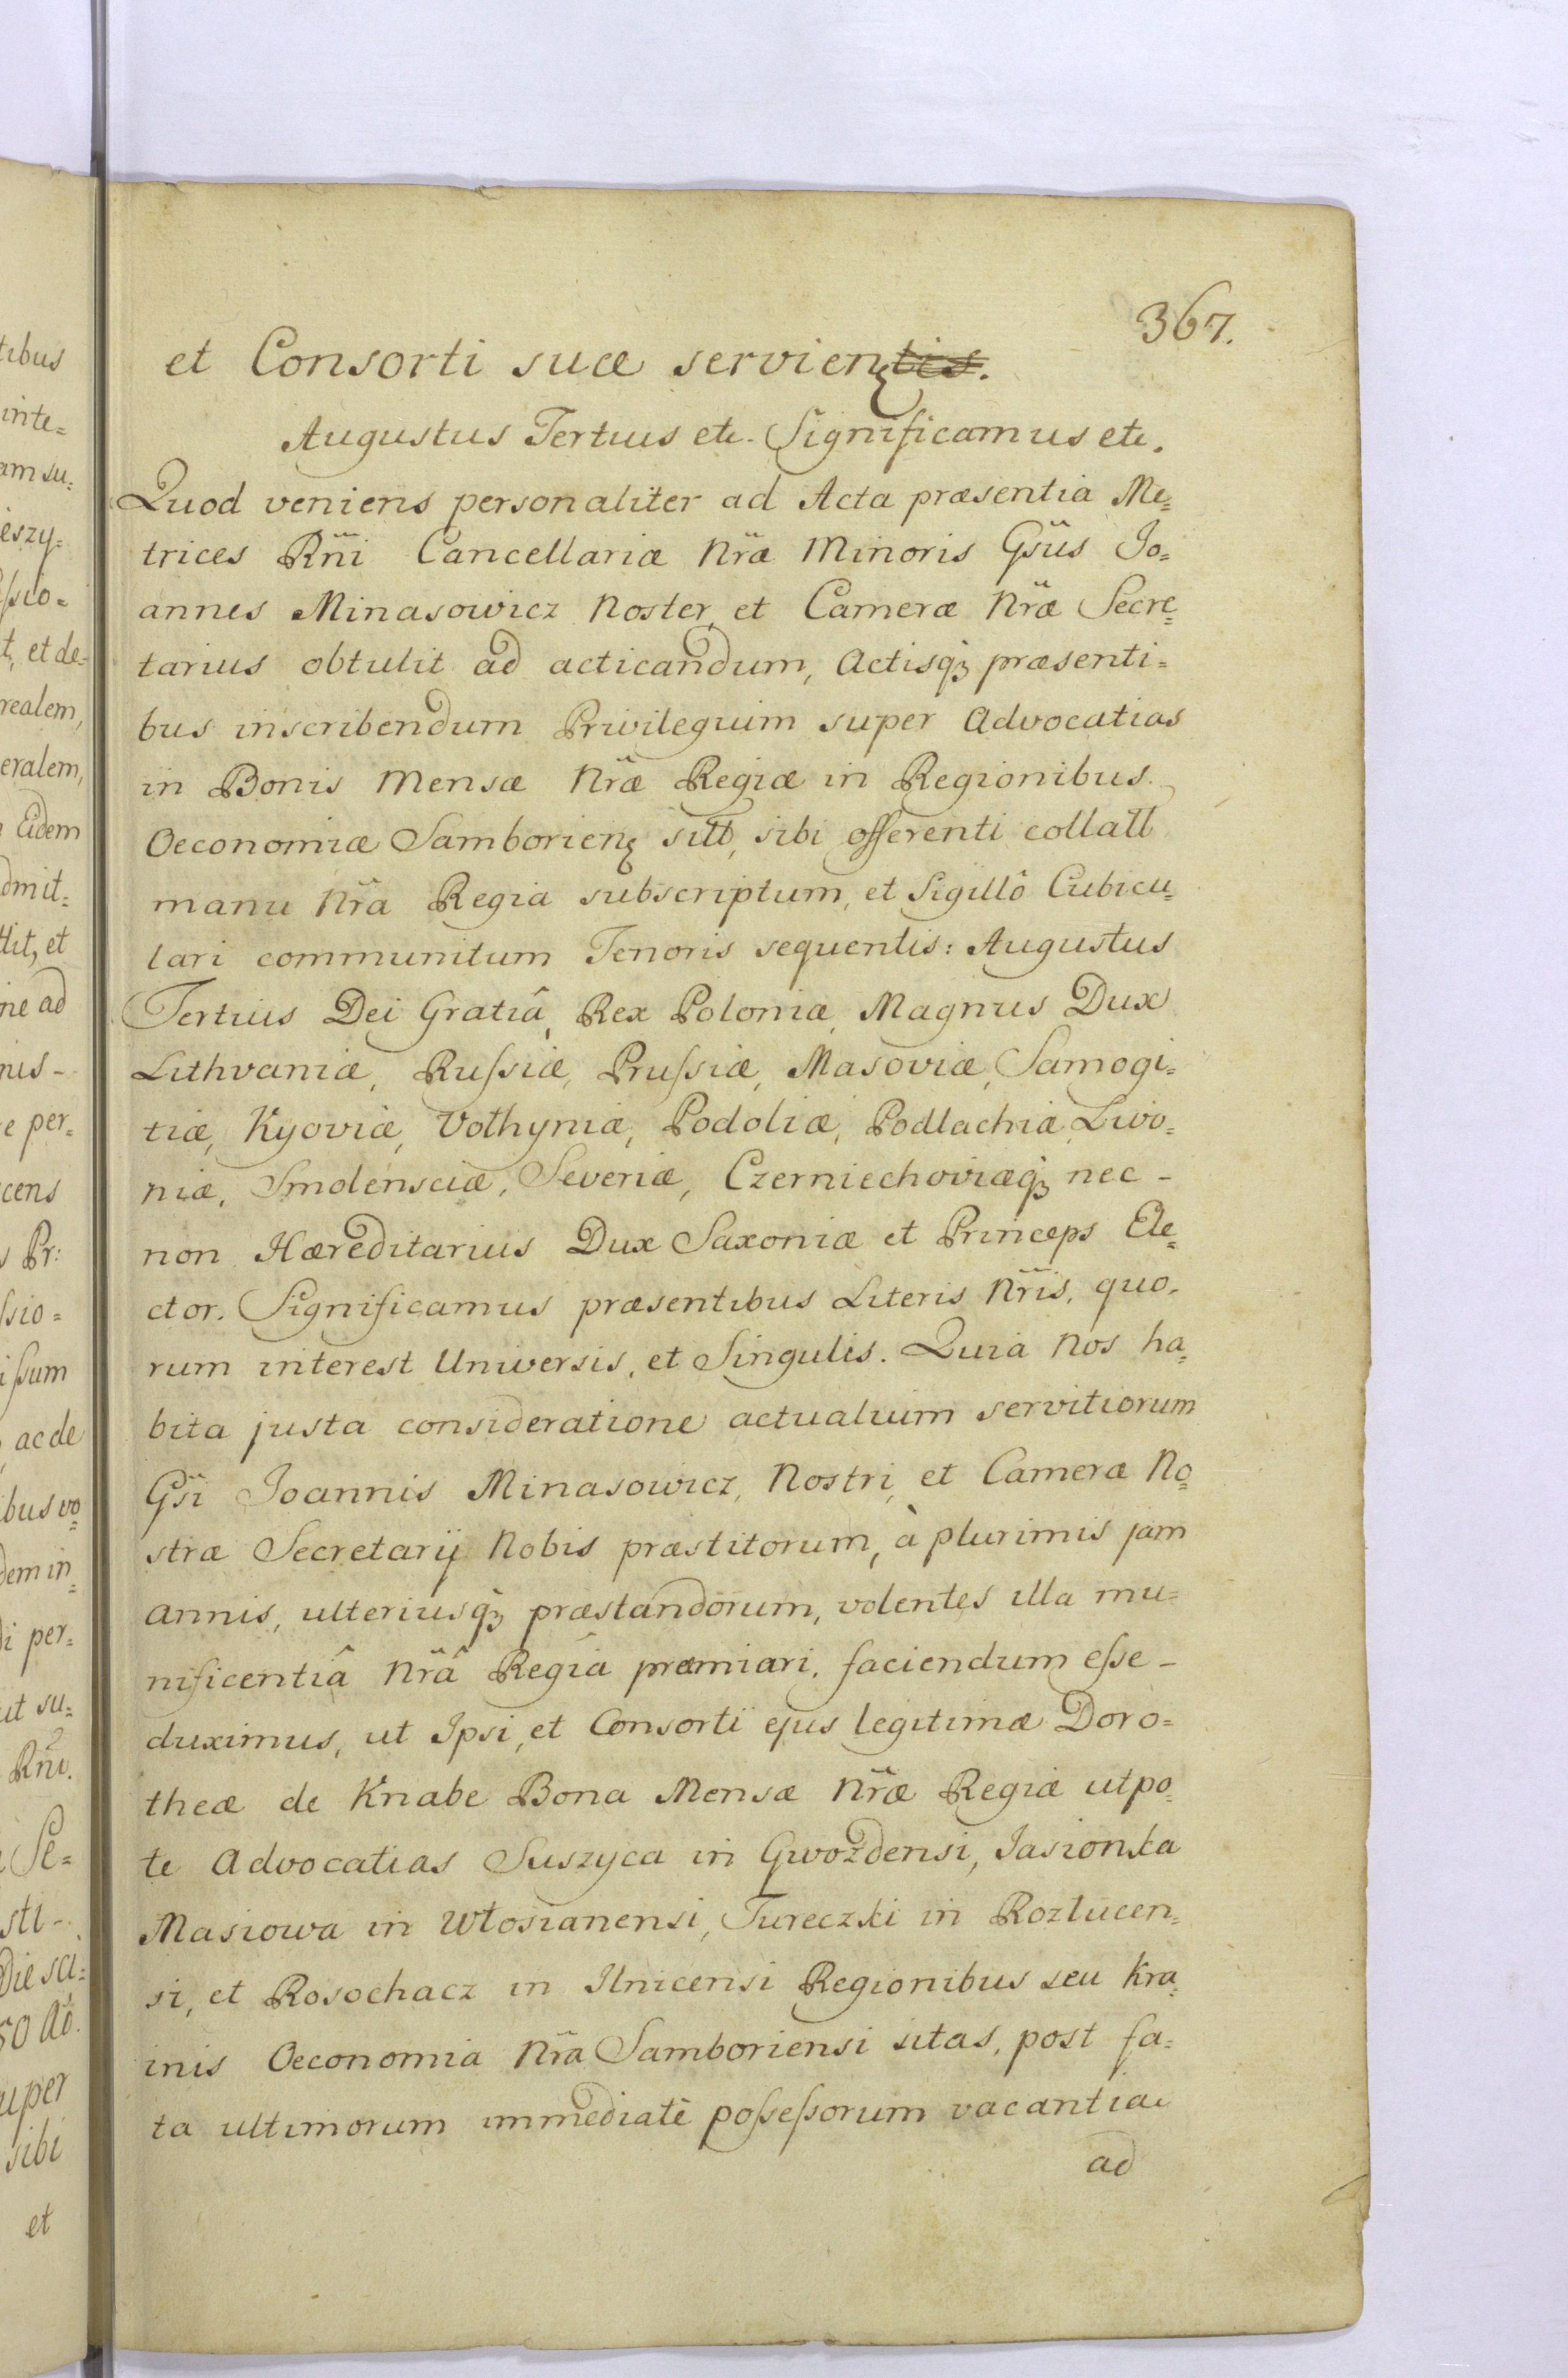 367.
et Consorti suæ servienꝫ tis.
Augustus Tertius etc. Significamus etc.
Quod veniens personaliter ad Acta præsentia Me=
trices Rñi Cancellariæ Nræ Minoris Gsüs Jo=
annes Minasowicz Noster, et Cameræ Nræ Secre=
tarius obtulit ad acticandum, Actisqꝫ præsenti=
bus inscribendum Privilegium super Advocatias
in Bonis Mensæ Nræ Regiæ in Regionibus
Oeconomiæ Samborienꝫ sitt, sibi offerenti collatt
manu Nra Regia subscriptum, et Sigillô Cubicu=
lari communitum Tenoris sequentis: Augustus
Tertius Dei Gratiâ, Rex Poloniæ, Magnus Dux
Lithvaniæ, Rußiæ, Prußiæ, Masoviæ, Samogi=
tiæ, Kyoviæ, Volhyniæ, Podoliæ, Podlachiæ, Livo=
niæ, Smolensciæ, Severiæ, Czerniechoviæqꝫ nec -
non Hæreditarius Dux Saxoniæ et Princeps Ele=
ctor. Significamus præsentibus Literis Nris, quo-
rum interest Universis, et Singulis. Quia Nos ha=
bita justa consideratione actualium servitiorum
Gsi Joannis Minasowicz, Nostri, et Cameræ No=
stræ Secretarij Nobis præstitorum, à plurimis jam
annis, ulteriusqꝫ præstandorum, volentes illa mu=
nificentiâ Nrâ Regiâ præmiari, faciendum eße -
duximus, ut Ipsi, et Consorti ejus legitimæ Doro=
theæ de Knabe Bona Mensæ Nræ Regiæ utpo=
te Advocatias Suszyca in Gwozdensi, Jasionka
Masiowa in Włosianensi, Tureczki in Rozłucen=
si, et Rosochacz in Ilnicensi Regionibus seu Kra=
inis Oeconomia Nra Samboriensi sitas, post fa=
ta ultimorum immediatè poßeßorum vacantia
ad
tibus
inte=
am su=
eszy=
ßio=
t, et de=
realem,
eralem,
Eidem
dmit=
tit, et
ne ad
nis -
e per=
cens
Pr:
ßio=
ißum
ac de
ibus vo=
dem in=
di per=
ut su=
Rñi.
Se=
sti -
Die sa=
50 Aô.
uper
sibi
et